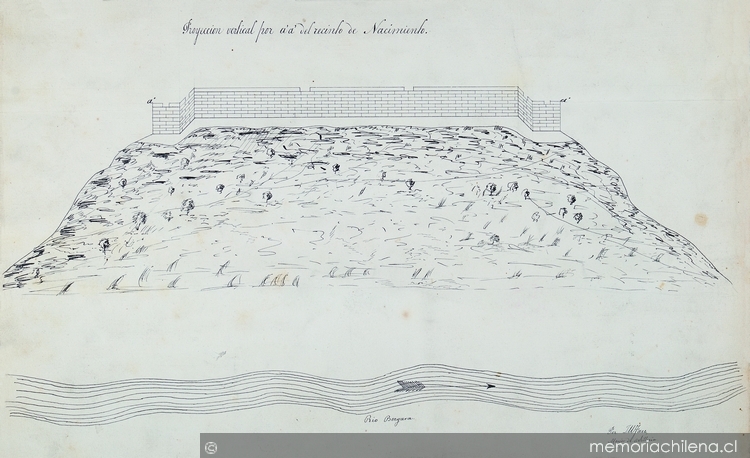 Proyeccion vertical por a'a' del recinto de Nacimiento.
a'
a'
Rio Bergara
Por
© memoriachilena.cl